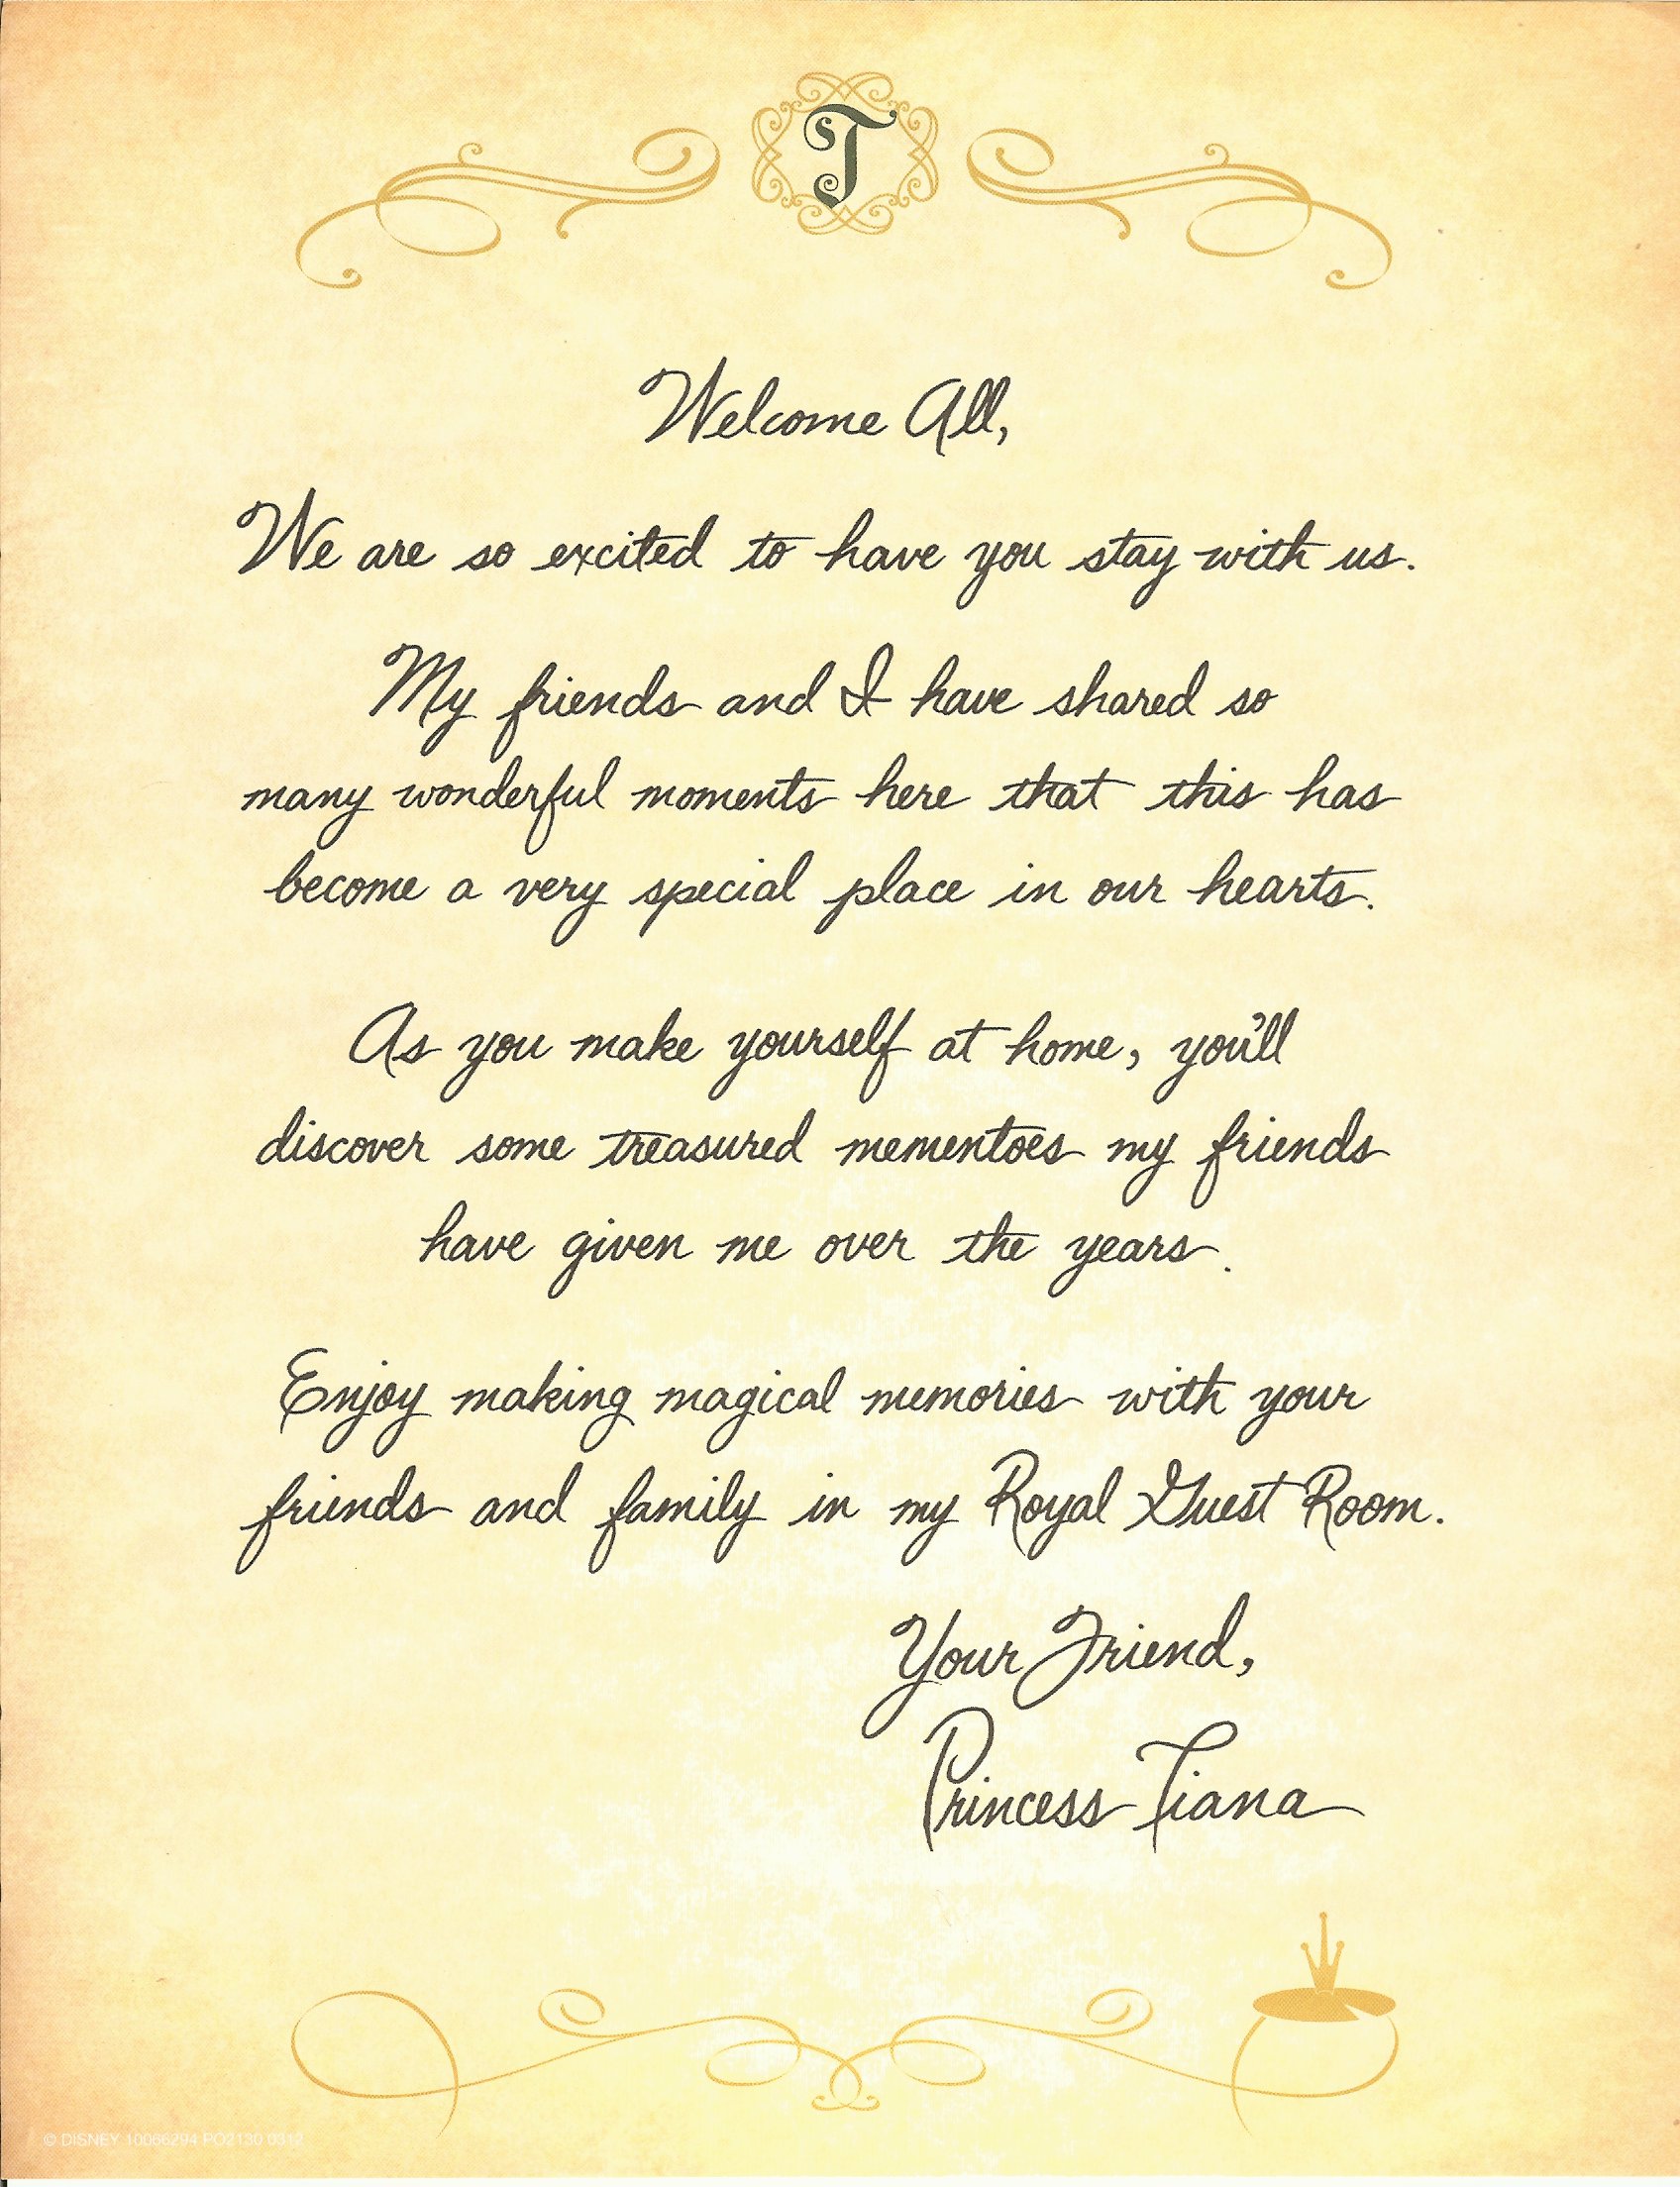 T
Welcome All,
We are so excited to have you stay with us.
My friends and I have shared so
many wonderful moments here that this has
become a very special place in our hearts.
As you make yourself at home, you'll
discover some treasured mementoes my friends
have given me over the years.
Enjoy making magical memories with your
friends and family in my Royal Guest Room.
Your Friend,
Princess Tiana
© DISNEY 10066294 PO2130 0312